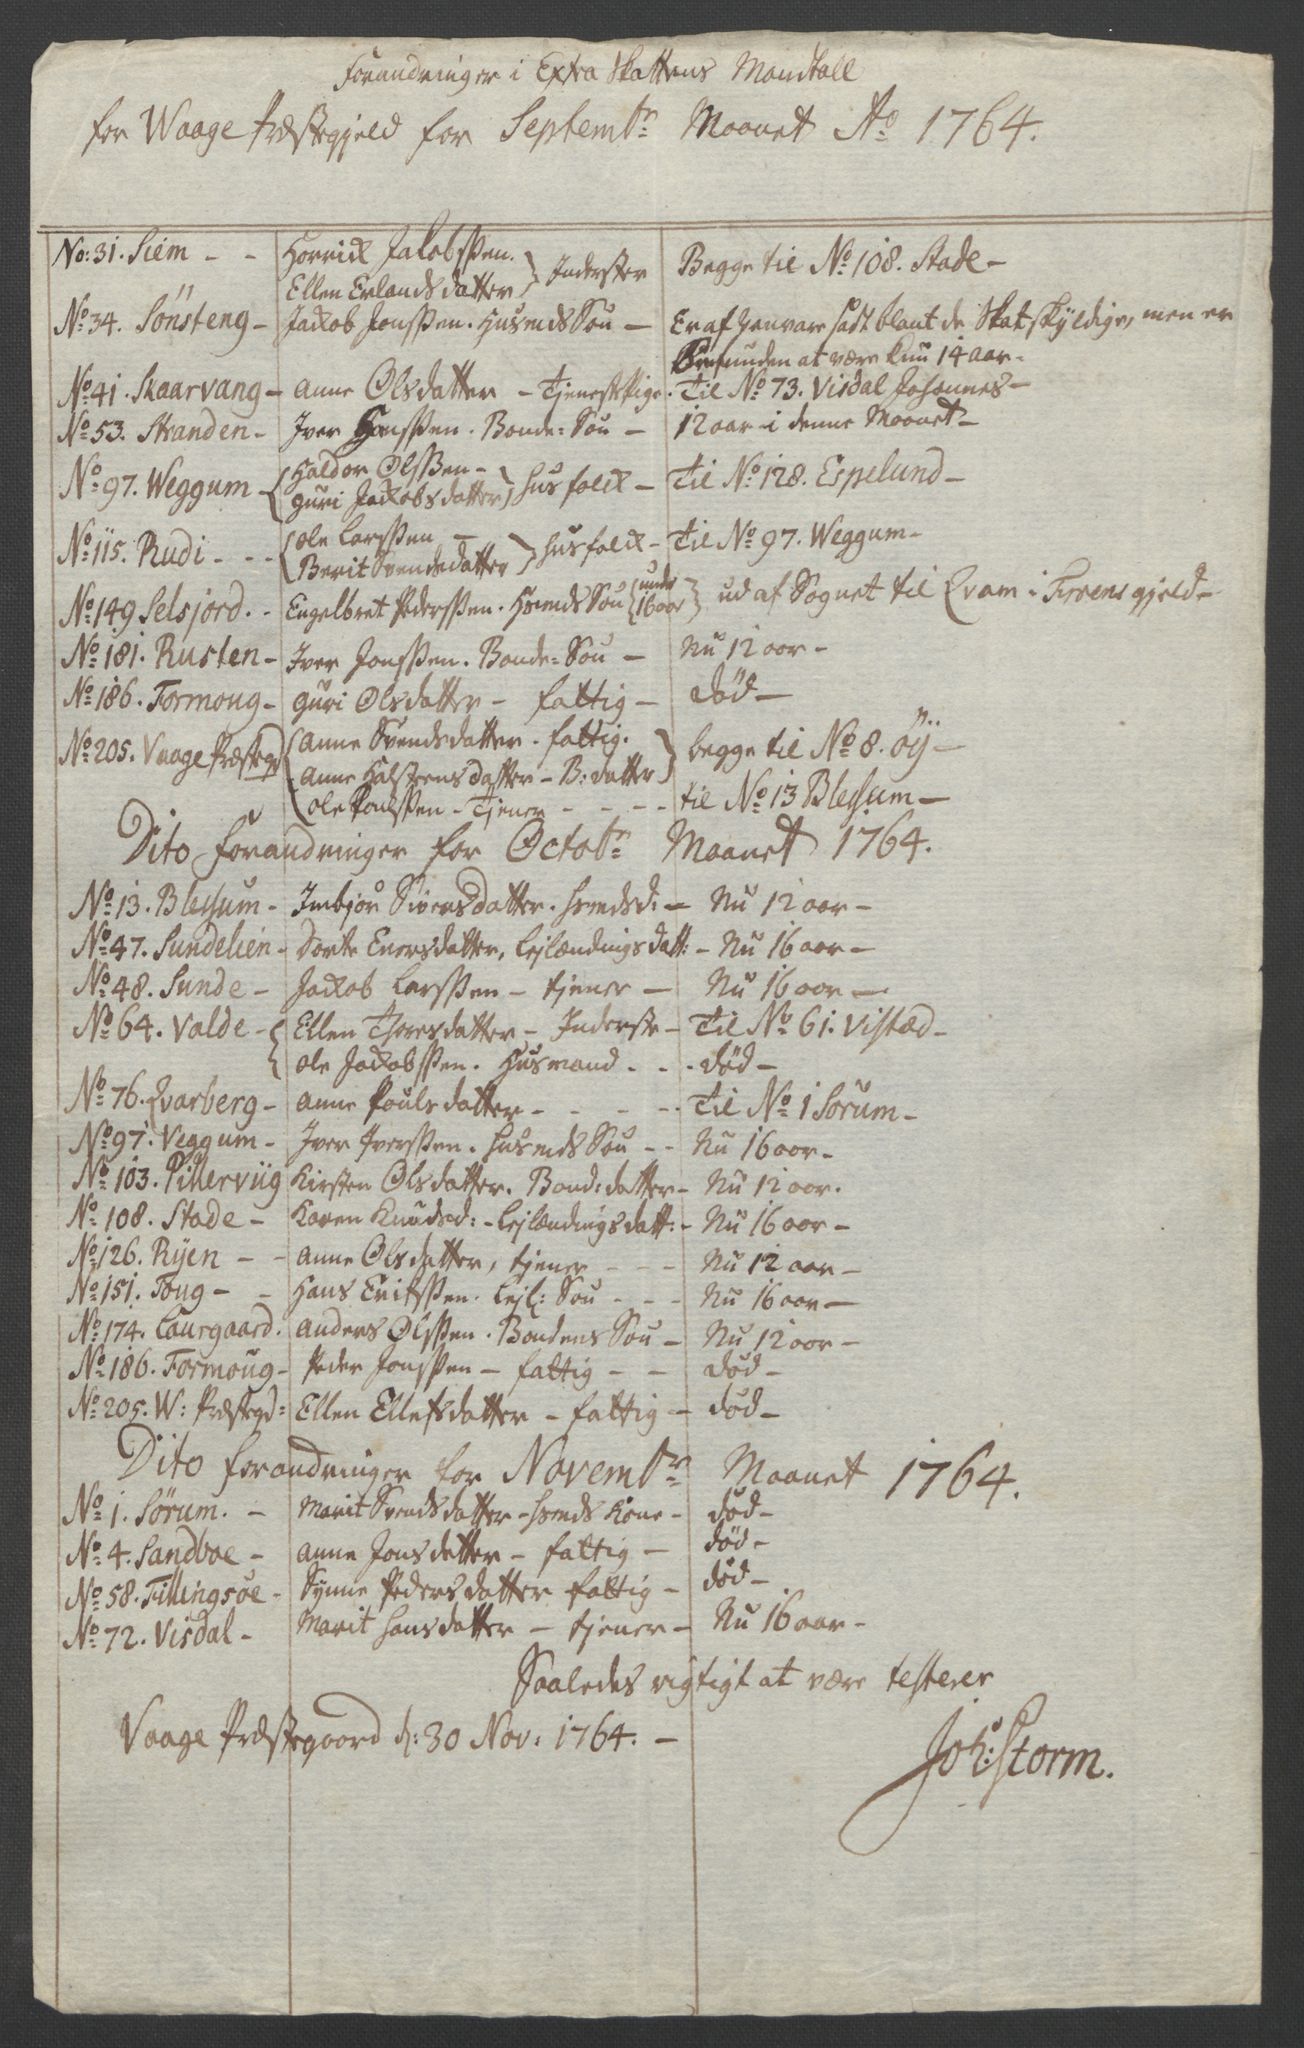 Forandringer i Extra Skattens Mandtall
for Waage Præstegjeld for Septembr Maanet Ao 1764.
No: 31. Siem - - Horrick Jakobssen. Begge til No 108. Stade -
Ellen Erlandsdatter } Inderster
No 34. Sönsteng - Jackob Jonssen. Husmds Søn - Er af henvare sadt blant de Skatskyldige, men er
Befunden at være kun 14 aar -
No 41. Skaarvang - Anne Olsdatter - Tjenestepige. Til No 73. Visdal Johannes -
No 53. Stranden - Iver Hanssen. Bonde-Søn - 12 aar i denne Maanet -
No 97. Weggum - { Haldor Olssen - Til No 128. Espelund -
Guri Jackobsdatter } Husfolck -
No 115. Rudi - - - { Ole Larssen - Til No 97. Weggum -
Berit Svendsdatter } Husfolck -
No 149 Selsjord. - Engelbret Pederssen. Hsmds Søn { under 16 aar } ud af Sognet til Qvam i Froens gjeld -
No 181. Rusten - Iver Jonssen. Bonde-Søn - Nu 12 aar -
No 186. Formoug - Guri Olsdatter - fattig - død -
No 205. Vaage Præstegd { Anne Svendsdatter. fattig. begge til No 8. öÿ -
Anne Halsteensdatter - B: datter }
Ole Poulssen - Tjener - - - - til No 13 Blessum -
Dito forandringer for Octobr Maanet 1764.
No 13. Blessum - Imbjør Siversdatter. Hsmdsd: - Nu 12 aar -
No 47. Sundelien - Dorte Enersdatter, Lejlændings datt: - Nu 16 aar -
No 48. Sunde - Jackob Larssen - tjener - Nu 16 aar -
No 64. Valde - { Ellen Thoresdatter - Inderste - Til No 61. Vistæd -
Ole Jackobssen. Husmand. - . død -
No 76. Qvarberg - Anne Poulsdatter - - - - Til No 1 Sorum -
No 97. Veggum - Iver Iverssen. Husmds Søn - - Nu 16 aar -
No 103. Pillerviig Kirsten Olsdatter. Bond: datter - Nu 12 aar.
No 108. Stade - Karen Knudsd: - Lejlændings datt: - Nu 16 aar -
No 126. Rÿen - - Anne Olsdatter, tjener - - - Nu 12 aar -
No 151. Toug - - Hans Erikssen. Lejl: Søn - - - Nu 16 aar -
No 174. Laurgaard. Anders Olssen. Bondens Søn - Nu 12 aar -
No 186. Formoug - Peder Jonssen - fattig - - død -
No 205. W: Præstegd: Ellen Ellefsdatter - fattig - død -
Dito forandringer for Novembr Maanet 1764.
No 1. Sørum. - Marit Svendsdatter - Hsmds Kone - død -
No 4. Sandboe - Anne Jonsdatter - fattig - død -
No 58. Tillingsøe - Synne Pedersdatter fattig - død -
No 72. Visdal - Marit Hansdatter - tjener - Nu 16 aar -
Saaledes rigtigt at være testerer
Vaage Præstegaard d: 30 Nov: 1764. -
Joh: Storm.